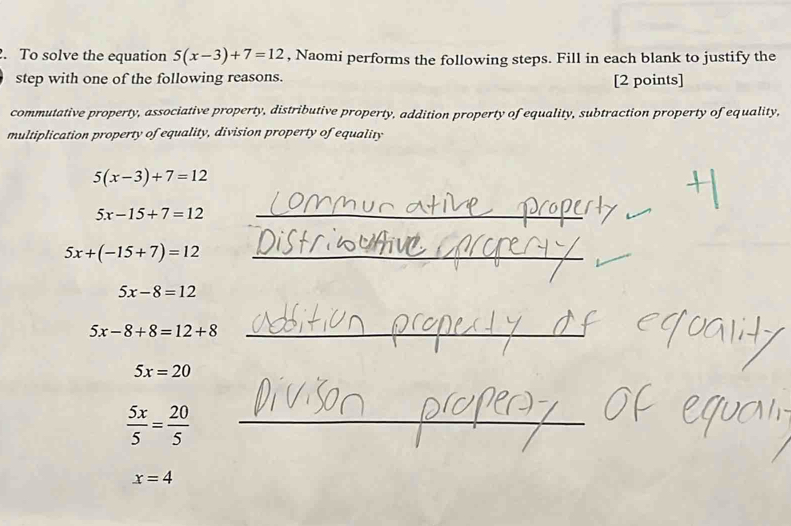 2. To solve the equation 5(x−3)+7=12, Naomi performs the following steps. Fill in each blank to justify the
step with one of the following reasons. [2 points]
commutative property, associative property, distributive property, addition property of equality, subtraction property of equality,
multiplication property of equality, division property of equality
5(x−3)+7=12
+1
5x−15+7=12 Communative property ✓
5x+(−15+7)=12 Distributive property ✓
5x−8=12
5x−8+8=12+8 addition property of equality
5x=20
5x/5=20/5 Divison property of equali
x=4